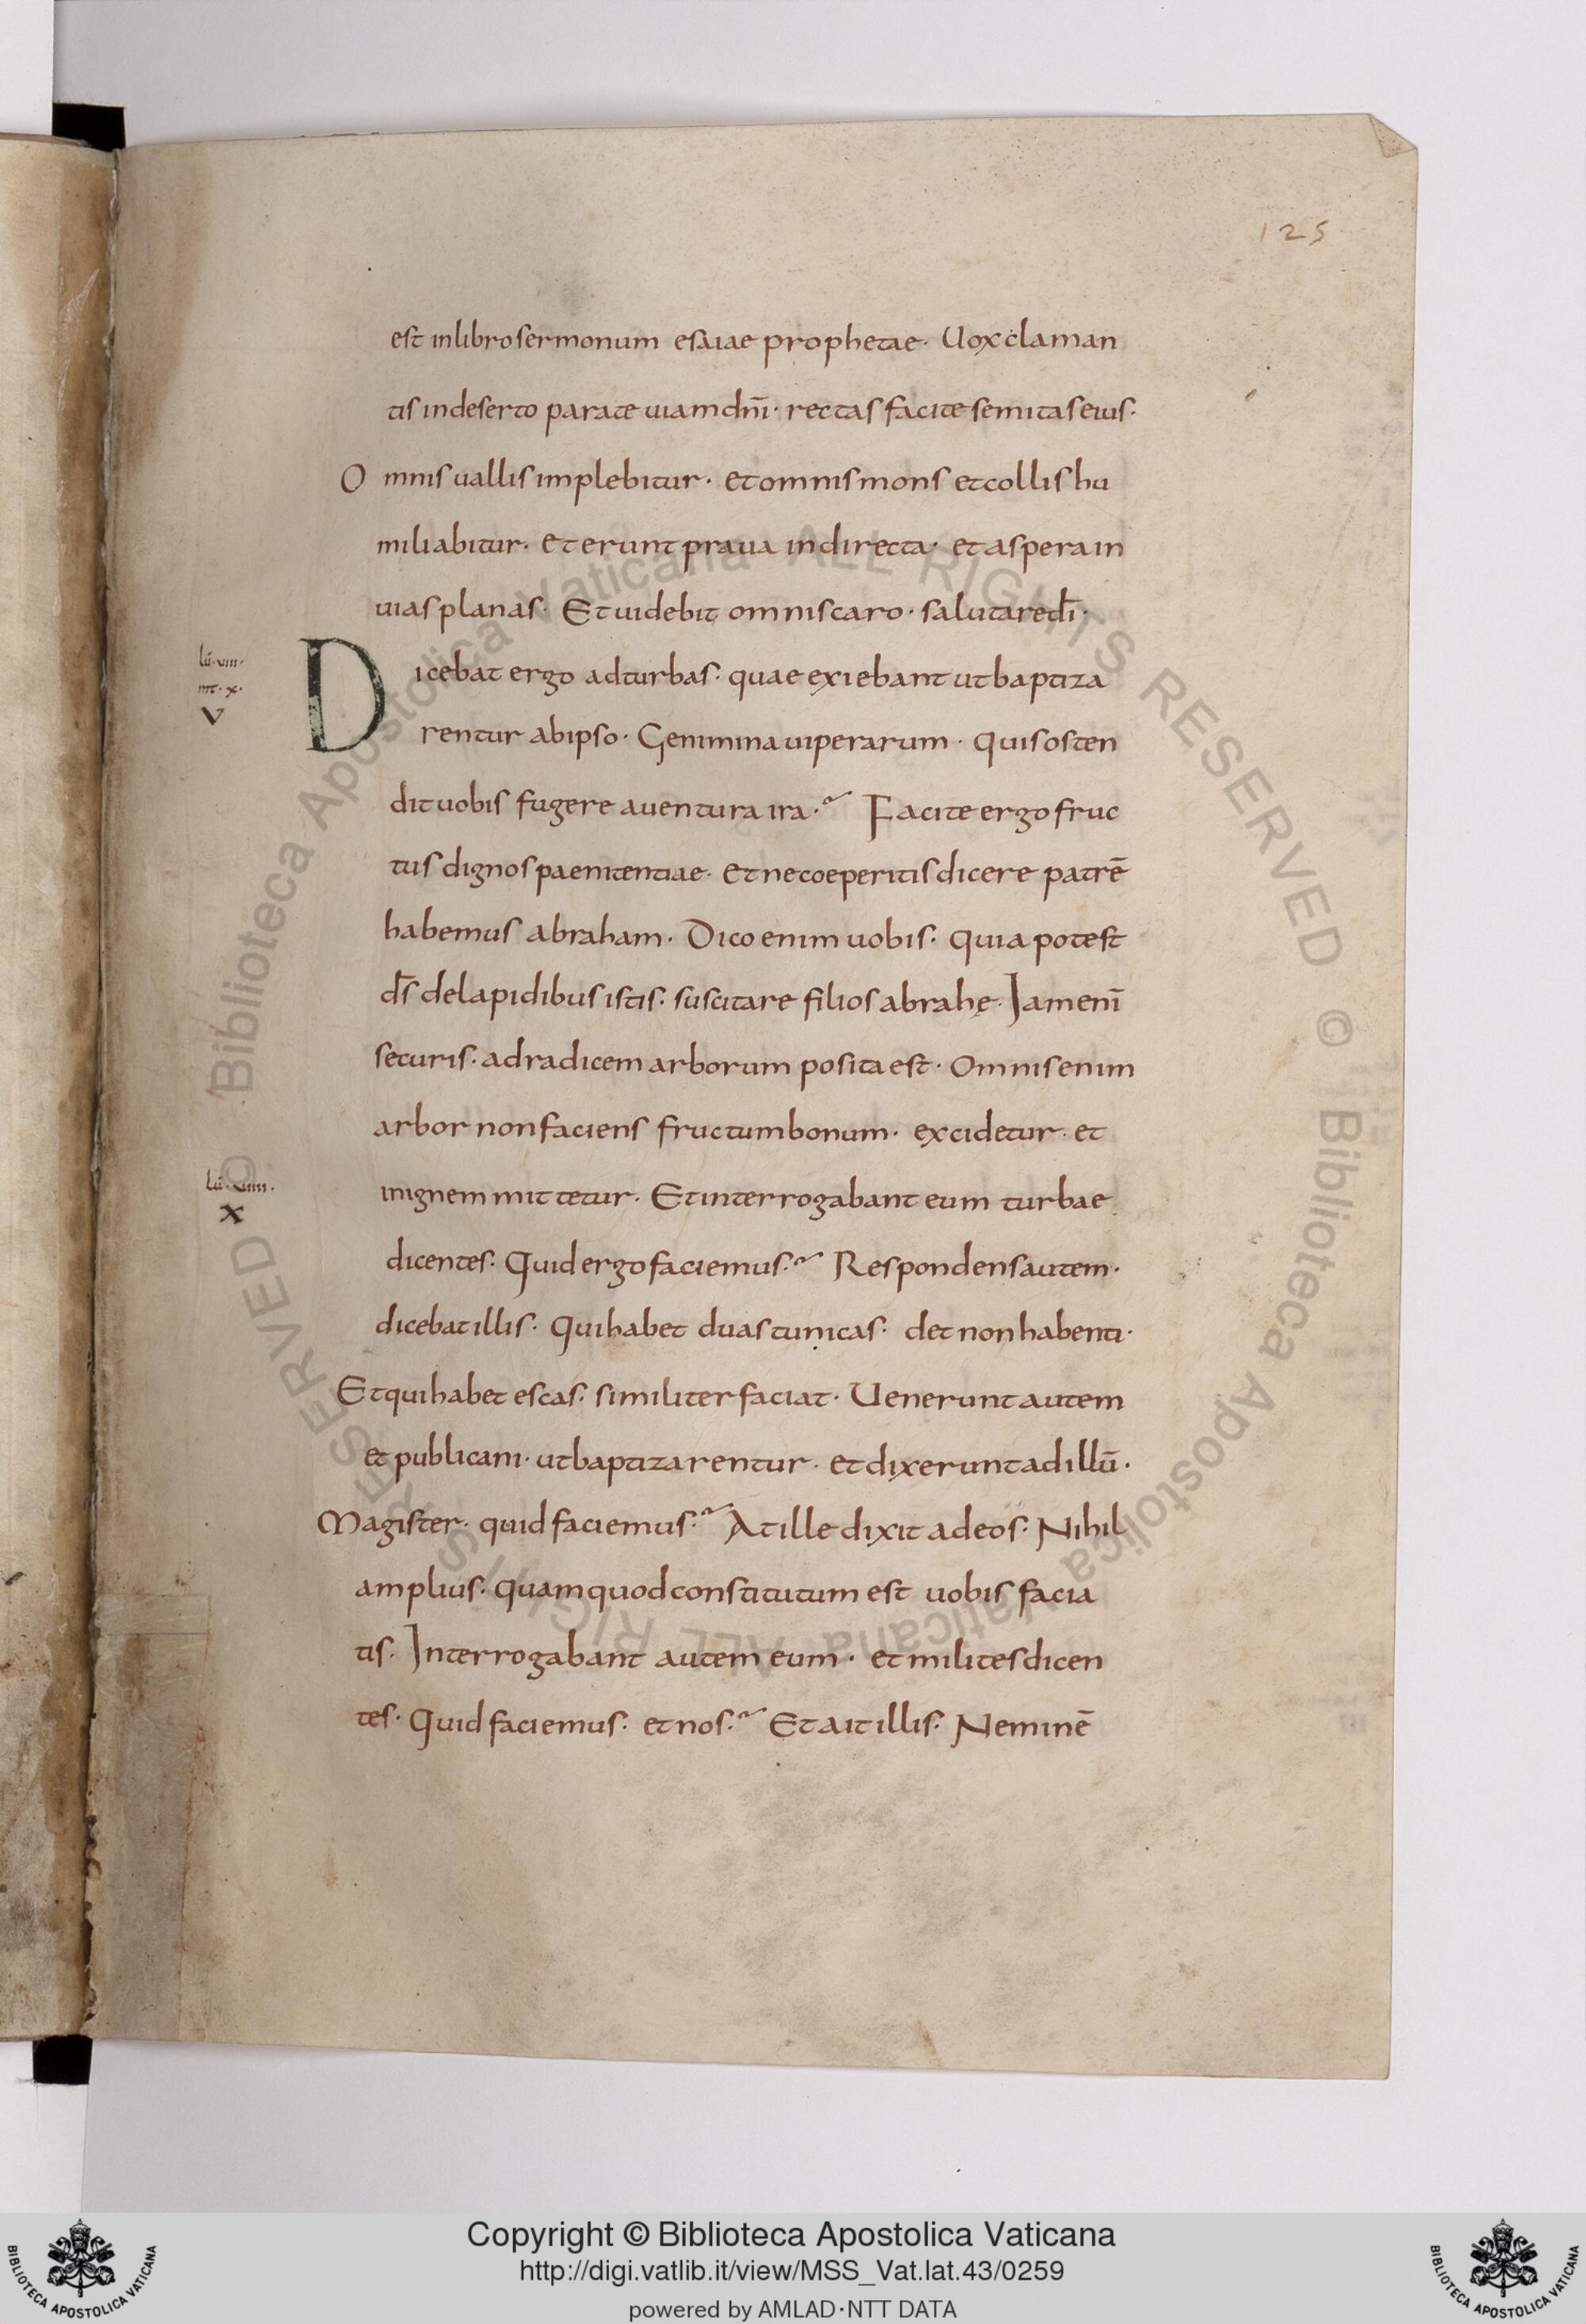 125
est inlibrosermonum esaiae prophetae· Uoxclaman
tis indeserto parate uiamdn̄i· rectasfacitesemitaseius·
Omnisuallisimplebitur· etomnismons etcollishu
miliabitur· eterunt praua indirecta· etasperain
uiasplanas· Etuidebit omniscaro· salutared̄i·
lū·uiii·
mt·x·
V
Dicebat ergo adturbas· quae exiebant utbaptiza
rentur abipso· Genimina uiperarum· quisosten
dituobis fugere auentura ira· Facite ergofruc
tusdignospaenitentiae· etnecoeperitisdicere patrē
habemus abraham· Dico enim uobis· quiapotest
d̄s delapidibusistis· suscitare filiosabrahę· Iamenī
securis· adradicem arborum posita est· Omnisenim
arbor nonfaciens fructumbonum· excidetur· et
lū·uiiii·
X
inignem mittetur· Etinterrogabant eum turbae
dicentes· Quid ergofaciemus· Respondensautem·
dicebatillis· Quihabet duastunicas· det nonhabenti·
Etquihabet escas· similiterfaciat· Ueneruntautem
et publicani· utbaptizarentur· etdixeruntadillū·
Magister· quid faciemus· Atille dixit adeos· Nihil
amplius· quamquodconstitutum est uobis facia
tis· Interrogabant autem eum· et militesdicen
tes· Quid faciemus· et nos· Etaitillis· Neminē
© Biblioteca Apostolica Vaticana ALL RIGHTS RESERVED © Biblioteca Apostolica Vaticana ALL RIGHTS RESERVED
Copyright © Biblioteca Apostolica Vaticana
http://digi.vatlib.it/view/MSS_Vat.lat.43/0259
powered by AMLAD·NTT DATA
BIBLIOTECA APOSTOLICA VATICANA
BIBLIOTECA APOSTOLICA VATICANA